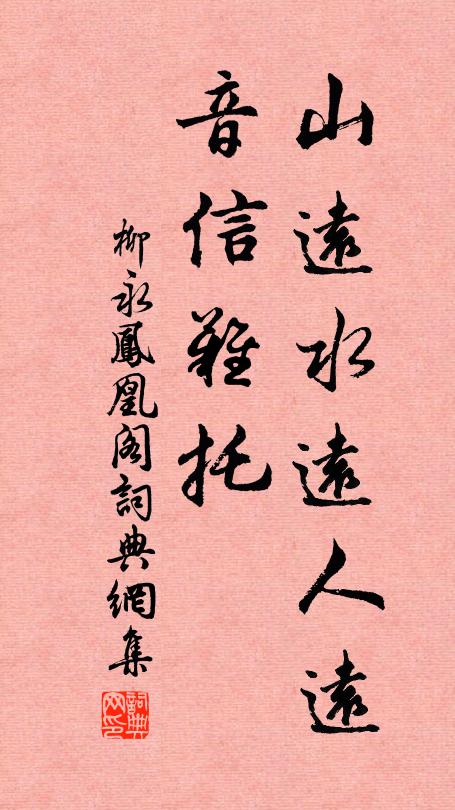 山遠水遠人遠
音信難托
柳永鳳凰閣詞典網集
詞典
网印